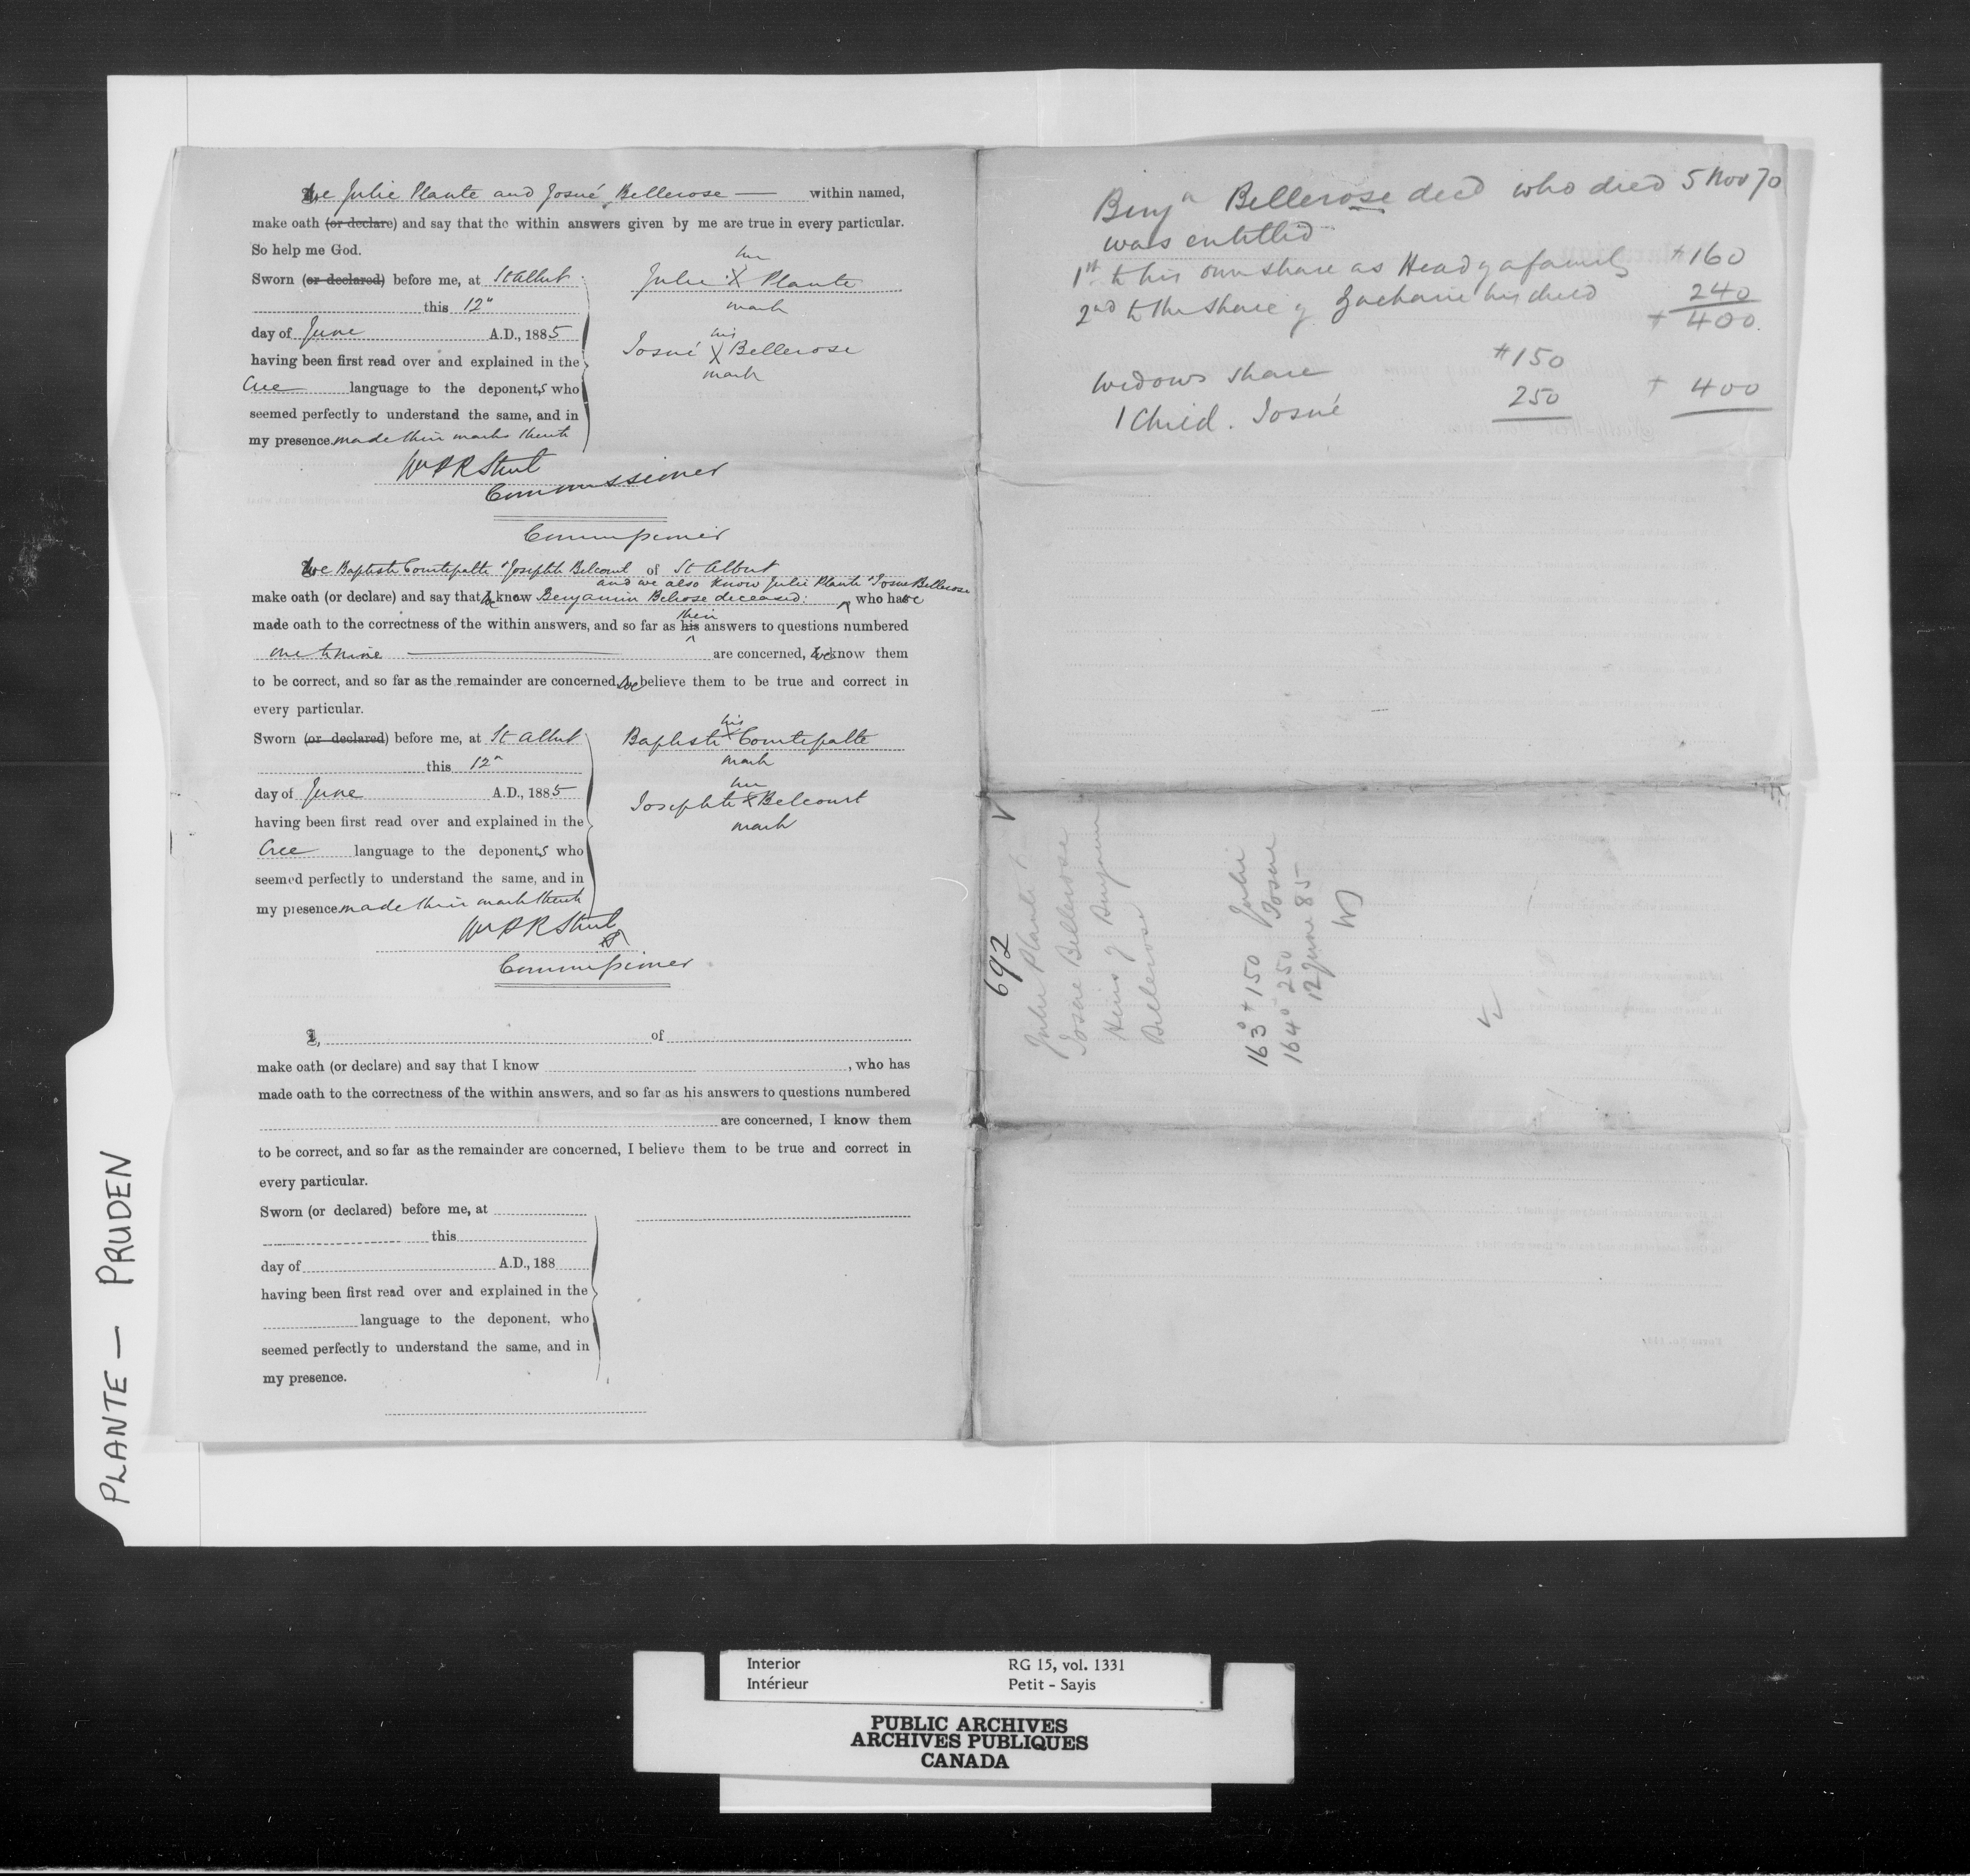 We Julie Plante and Josué Bellerose — within named,
make oath (or declare) and say that the within answers given by me are true in every particular.
So help me God.
Sworn (or declared) before me, at St Albert
this 12"
day of June A.D., 1885
having been first read over and explained in the
Cree language to the deponents who
seemed perfectly to understand the same, and in
my presence made their marks thereto
her
Julie X Plante
mark
his
Josué X Bellerose
mark
Commissioner
Commissioner
We Baptiste Courtepatte & Josephte Belcourt of St Albert
and we also know Julie Plante & Josue Bellerose
make oath (or declare) and say that we know Benjamin Belrose deceased: who have
their
made oath to the correctness of the within answers, and so far as his answers to questions numbered
one to nine are concerned, we know them
to be correct, and so far as the remainder are concerned, we believe them to be true and correct in
every particular.
Sworn (or declared) before me, at St Albert
this 12"
day of June A.D., 1885
having been first read over and explained in the
Cree language to the deponents who
seemed perfectly to understand the same, and in
my presence made their mark thereto
his
Baptiste X Courtepatte
mark
her
Josephte X Belcourt
mark
Commissioner
I, of
make oath (or declare) and say that I know , who has
made oath to the correctness of the within answers, and so far as his answers to questions numbered
are concerned, I know them
to be correct, and so far as the remainder are concerned, I believe them to be true and correct in
every particular.
Sworn (or declared) before me, at
this
day of A.D., 188
having been first read over and explained in the
language to the deponent, who
seemed perfectly to understand the same, and in
my presence.
Benjn Bellerose decd who died 5 Nov 70
was entitled
1st to his own share as Head of a family $160
2nd to the share of Zacharie his child 240
$400
Widows share $150
1 Child. Josué 250 $400
692
Julie Plante &
Josue Bellerose
Heirs of Benjamin
Bellerose
163° $150 Julie
164° 250 Josue
12 June 85
PLANTE — PRUDEN
Interior RG 15, vol. 1331
Intérieur Petit - Sayis
PUBLIC ARCHIVES
ARCHIVES PUBLIQUES
CANADA